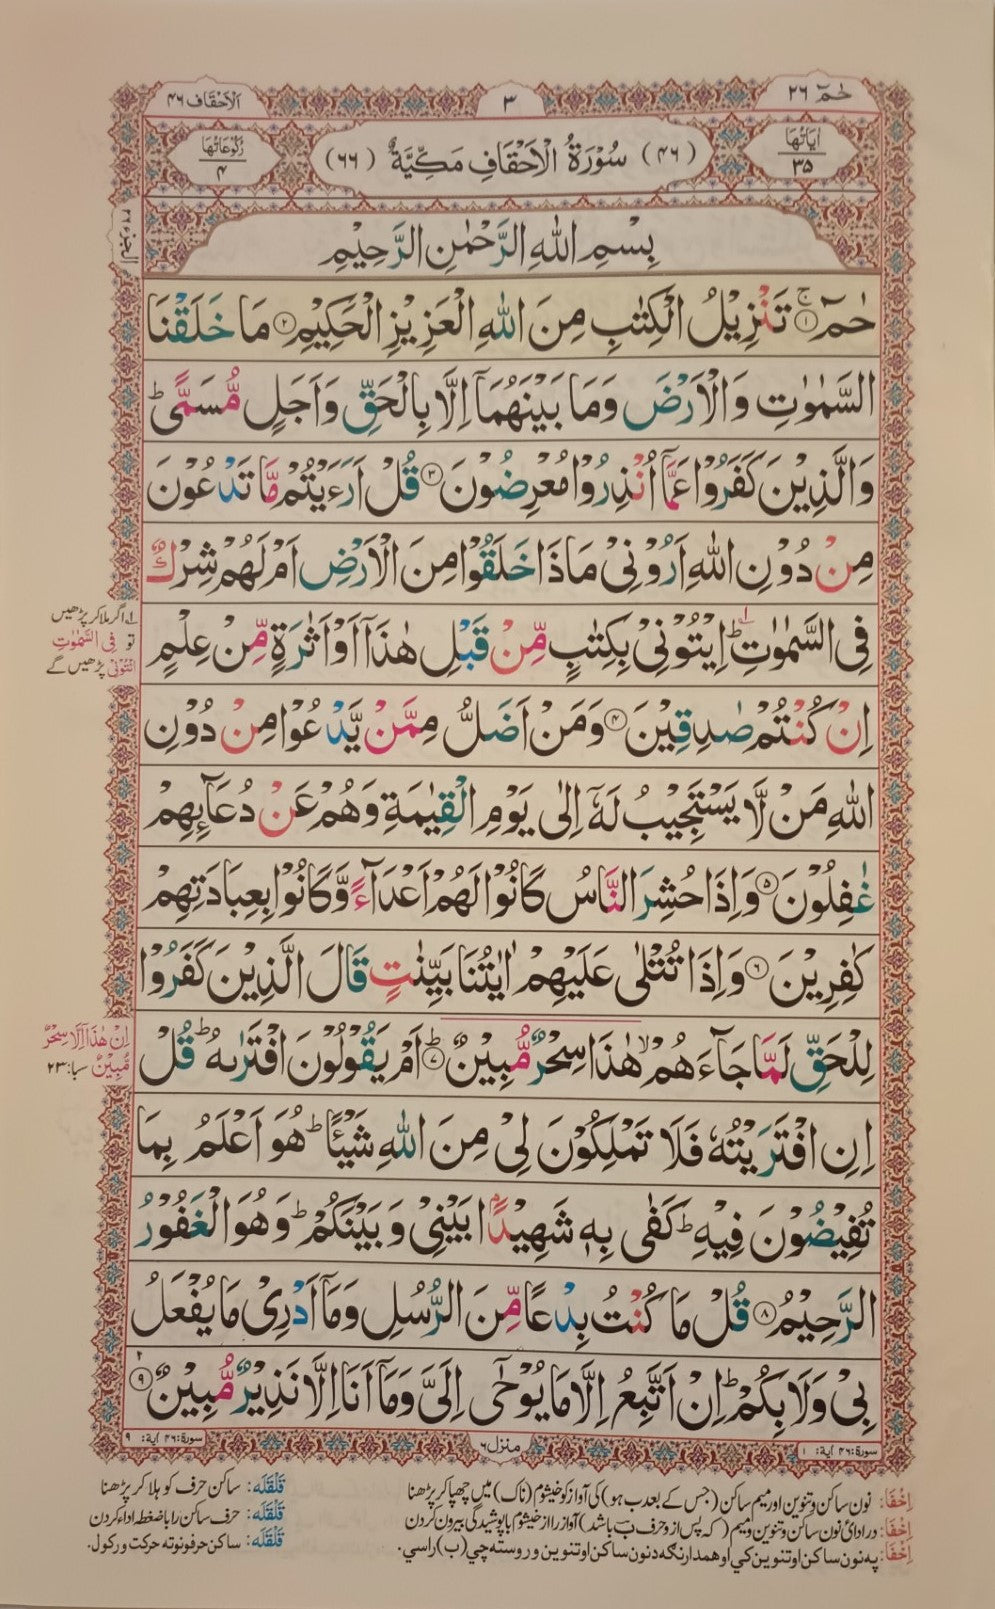 حٰمٓ ۲۶
۳
الاحقاف ۴۶
اٰيَاتُهَا ۳۵
(۴۶) سُوْرَةُ الْاَحْقَافِ مَكِّيَّةٌ (۶۶)
رُكُوْعَاتُهَا ۴
بِسْمِ اللّٰهِ الرَّحْمٰنِ الرَّحِيْمِ
حٰمٓ ۚ‏﴿۱﴾ تَنْزِيْلُ الْكِتٰبِ مِنَ اللّٰهِ الْعَزِيْزِ الْحَكِيْمِ ﴿۲﴾ مَا خَلَقْنَا
السَّمٰوٰتِ وَالْاَرْضَ وَمَا بَيْنَهُمَاۤ اِلَّا بِالْحَقِّ وَاَجَلٍ مُّسَمًّى ؕ
وَالَّذِيْنَ كَفَرُوْا عَمَّاۤ اُنْذِرُوْا مُعْرِضُوْنَ ﴿۳﴾ قُلْ اَرَءَيْتُمْ مَّا تَدْعُوْنَ
مِنْ دُوْنِ اللّٰهِ اَرُوْنِيْ مَاذَا خَلَقُوْا مِنَ الْاَرْضِ اَمْ لَهُمْ شِرْكٌ
فِي السَّمٰوٰتِ ؕ اِيْتُوْنِيْ بِكِتٰبٍ مِّنْ قَبْلِ هٰذَاۤ اَوْ اَثٰرَةٍ مِّنْ عِلْمٍ
اِنْ كُنْتُمْ صٰدِقِيْنَ ﴿۴﴾ وَمَنْ اَضَلُّ مِمَّنْ يَّدْعُوْا مِنْ دُوْنِ
اللّٰهِ مَنْ لَّا يَسْتَجِيْبُ لَهٗۤ اِلٰى يَوْمِ الْقِيٰمَةِ وَهُمْ عَنْ دُعَآئِهِمْ
غٰفِلُوْنَ ﴿۵﴾ وَاِذَا حُشِرَ النَّاسُ كَانُوْا لَهُمْ اَعْدَآءً وَّكَانُوْا بِعِبَادَتِهِمْ
كٰفِرِيْنَ ﴿۶﴾ وَاِذَا تُتْلٰى عَلَيْهِمْ اٰيٰتُنَا بَيِّنٰتٍ قَالَ الَّذِيْنَ كَفَرُوْا
لِلْحَقِّ لَمَّا جَآءَهُمْ ۙ هٰذَا سِحْرٌ مُّبِيْنٌ ؕ‏﴿۷﴾ اَمْ يَقُوْلُوْنَ افْتَرٰىهُ ؕ قُلْ
اِنِ افْتَرَيْتُهٗ فَلَا تَمْلِكُوْنَ لِيْ مِنَ اللّٰهِ شَيْـًٔا ؕ هُوَ اَعْلَمُ بِمَا
تُفِيْضُوْنَ فِيْهِ ؕ كَفٰى بِهٖ شَهِيْدًۢا بَيْنِيْ وَبَيْنَكُمْ ؕ وَهُوَ الْغَفُوْرُ
الرَّحِيْمُ ﴿۸﴾ قُلْ مَا كُنْتُ بِدْعًا مِّنَ الرُّسُلِ وَمَاۤ اَدْرِيْ مَا يُفْعَلُ
بِيْ وَلَا بِكُمْ ؕ اِنْ اَتَّبِعُ اِلَّا مَا يُوْحٰۤى اِلَيَّ وَمَاۤ اَنَا اِلَّا نَذِيْرٌ مُّبِيْنٌ ﴿۹﴾
الجزء ۲۶
لے اگر ملا کر پڑھیں
تو فِي السَّمٰوٰتِ
ائْتُوْنِيْ پڑھیں گے
اِنْ هٰذَاۤ اِلَّا سِحْرٌ
مُّبِيْنٌ سبا: ۲۳
سورة: ۴۶ اٰية: ۱
منزل ۶
سورة: ۴۶ اٰية: ۹
اِخْفَا: نون ساکن و تنوین اور میم ساکن (جس کے بعد ب ہو) کی آواز کو خیشوم (ناک) میں چھپا کر پڑھنا
قَلْقَلَه: ساکن حرف کو ہلا کر پڑھنا
اِخْفَا: در ادائ نون ساکن و تنوین و میم (که پس از و حرف ب باشد) آواز را از خیشوم با پوشیدگی بیرون کردن
قَلْقَلَه: حرف ساکن را با ضغط اداء کردن
اِخْفَا: په نون ساکن او تنوین کي او همدارنګه د نون ساکن او تنوین و روسته چي (ب) راسي.
قَلْقَلَه: ساکن حرفونو ته حرکت ورکول.